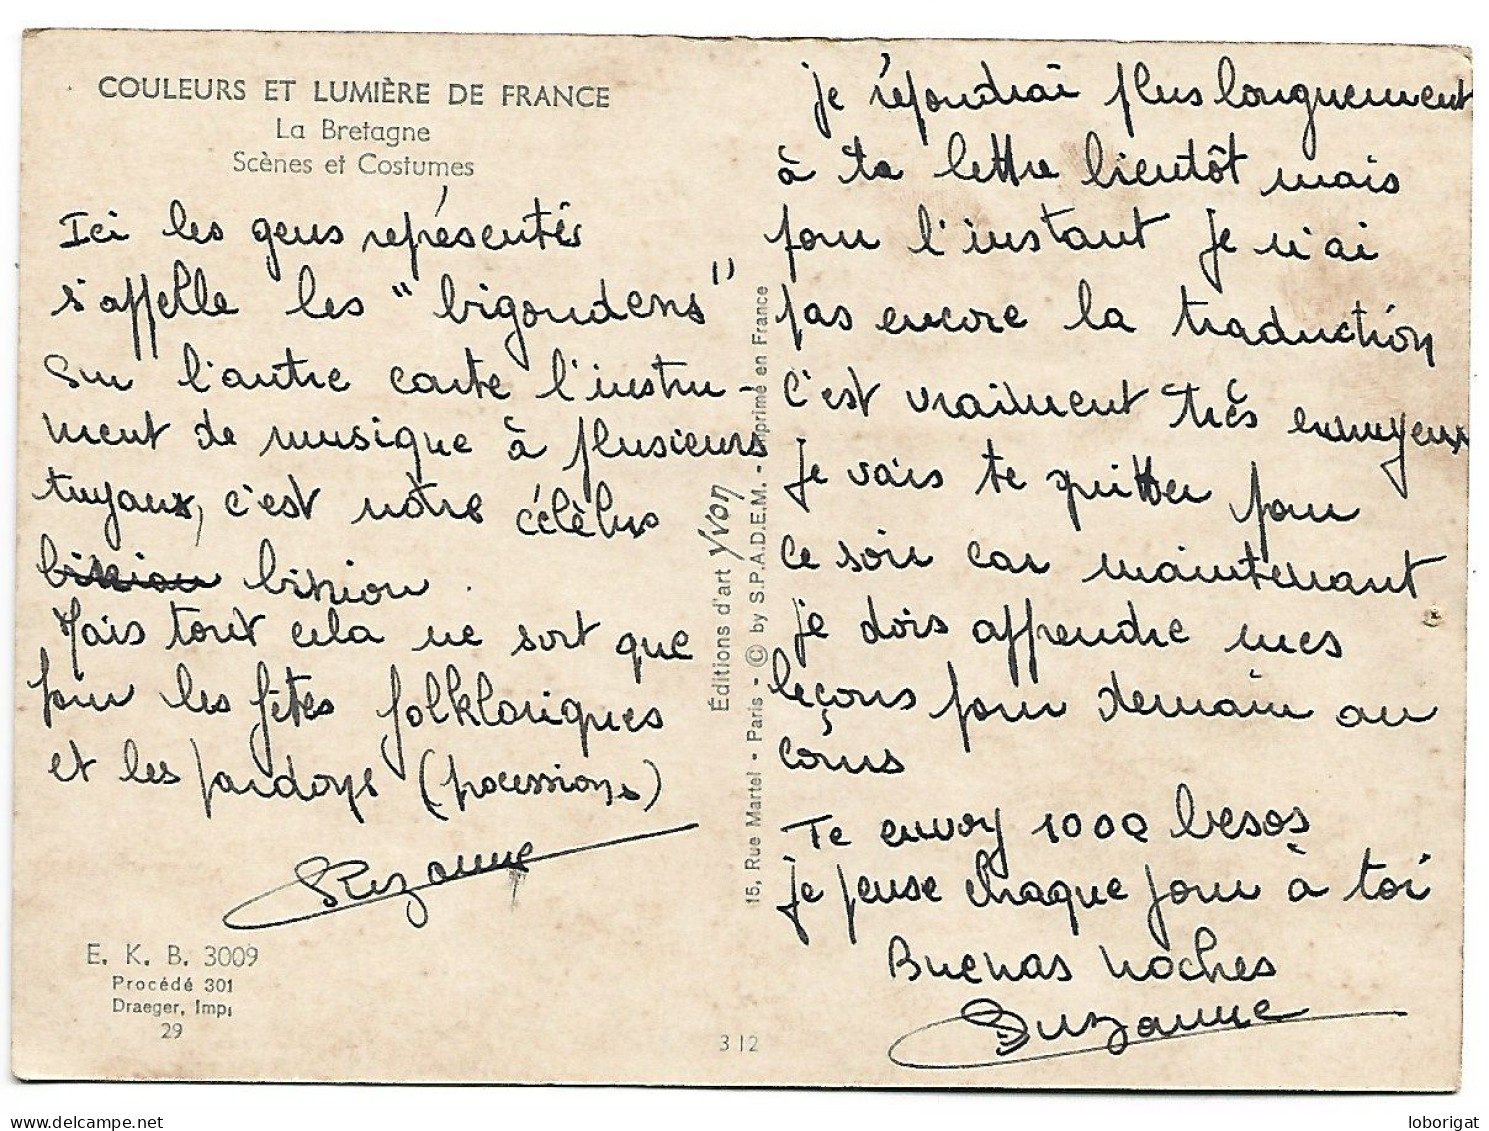 COULEURS ET LUMIÈRE DE FRANCE
La Bretagne
Scènes et Costumes
Ici les gens représentés
s'appelle les "bigoudens"
sur l'autre carte l'instru-
ment de musique à plusieurs
tuyaux, c'est notre célèbre
biniou biniou.
Mais tout cela ne sort que
pour les fêtes folkloriques
et les pardons (processions)
Suzanne
E. K. B. 3009
Procédé 301
Draeger, Imp.
29
Éditions d'art Yvon
15, Rue Martel - Paris - © by S.P.A.D.E.M. - Imprimé en France
312
je répondrai plus longuement
à ta lettre bientôt mais
pour l'instant je n'ai
pas encore la traduction
c'est vraiment très ennuyeux
je vais te quitter pour
ce soir car maintenant
je dois apprendre mes
leçons pour demain au
cours
Te envoy 1000 besos
je pense chaque jour à toi
Buenas noches
Suzanne
loborigat